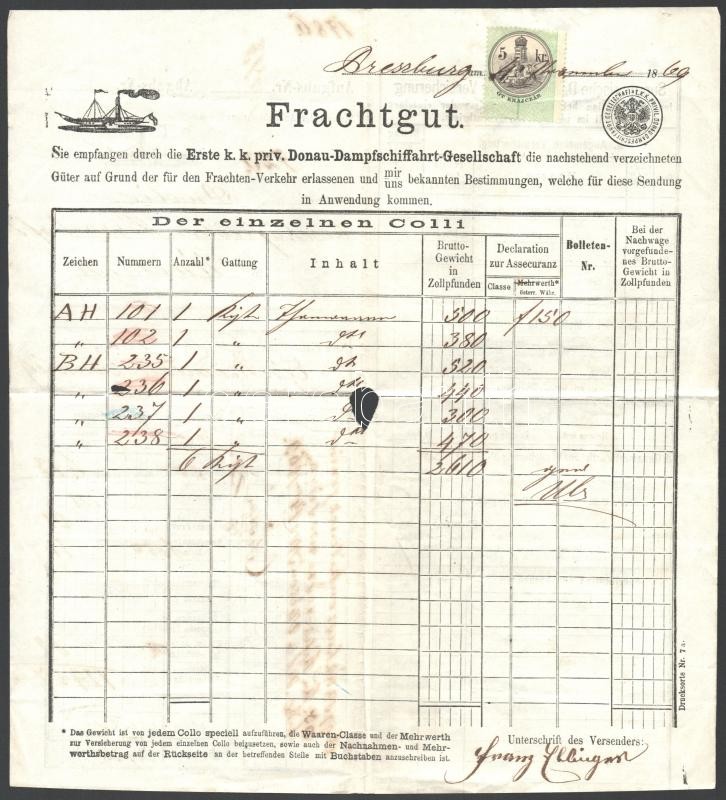 Pressburg am 186 9
5 kr.
ÖF. KRAJCZÁR
Frachtgut.
Sie empfangen durch die Erste k. k. priv. Donau-Dampfschiffahrt-Gesellschaft die nachstehend verzeichneten
Güter auf Grund der für den Frachten-Verkehr erlassenen und mir/uns bekannten Bestimmungen, welche für diese Sendung
in Anwendung kommen.
Der einzelnen Colli
Zeichen Nummern Anzahl* Gattung Inhalt Brutto-Gewicht in Zollpfunden Declaration zur Assecuranz Classe Mehrwerth* österr. Währ. Bolleten-Nr. Bei der Nachwage vorgefundenes Brutto-Gewicht in Zollpfunden
AH 101 1 Kist 500 f 150
„ 102 1 „ dto 380
BH 235 1 „ dto 520
„ 236 1 „ dto 440
„ 237 1 „ 300
„ 238 1 „ dto 470
6 Kist 2610
* Das Gewicht ist von jedem Collo speciell aufzuführen, die Waaren-Classe und der Mehrwerth
zur Versicherung von jedem einzelnen Collo beizusetzen, sowie auch der Nachnahmen- und Mehr-
werthsbetrag auf der Rückseite an der betreffenden Stelle mit Buchstaben anzuschreiben ist.
Unterschrift des Versenders:
Franz Ellinger
Drucksorte Nr. 7 a.